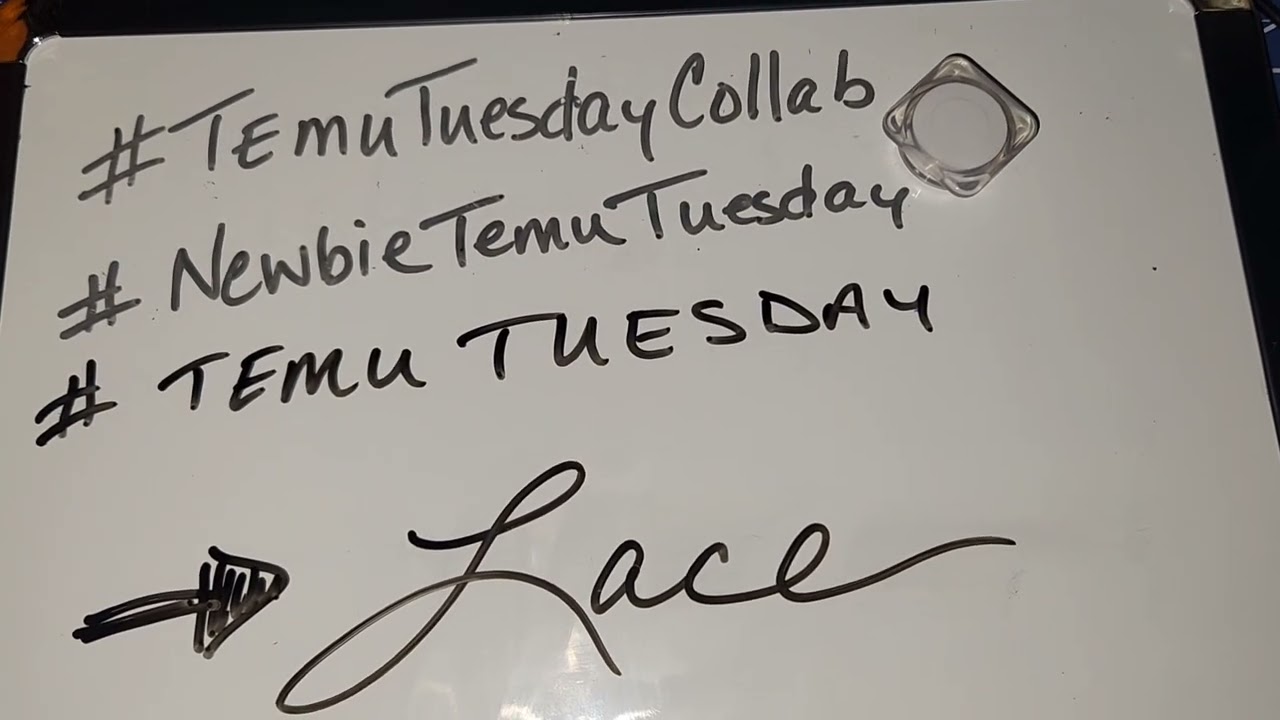 #TEmuTuesdayCollab
# NewbieTemuTuesday
# TEMU TUESDAY
Lace